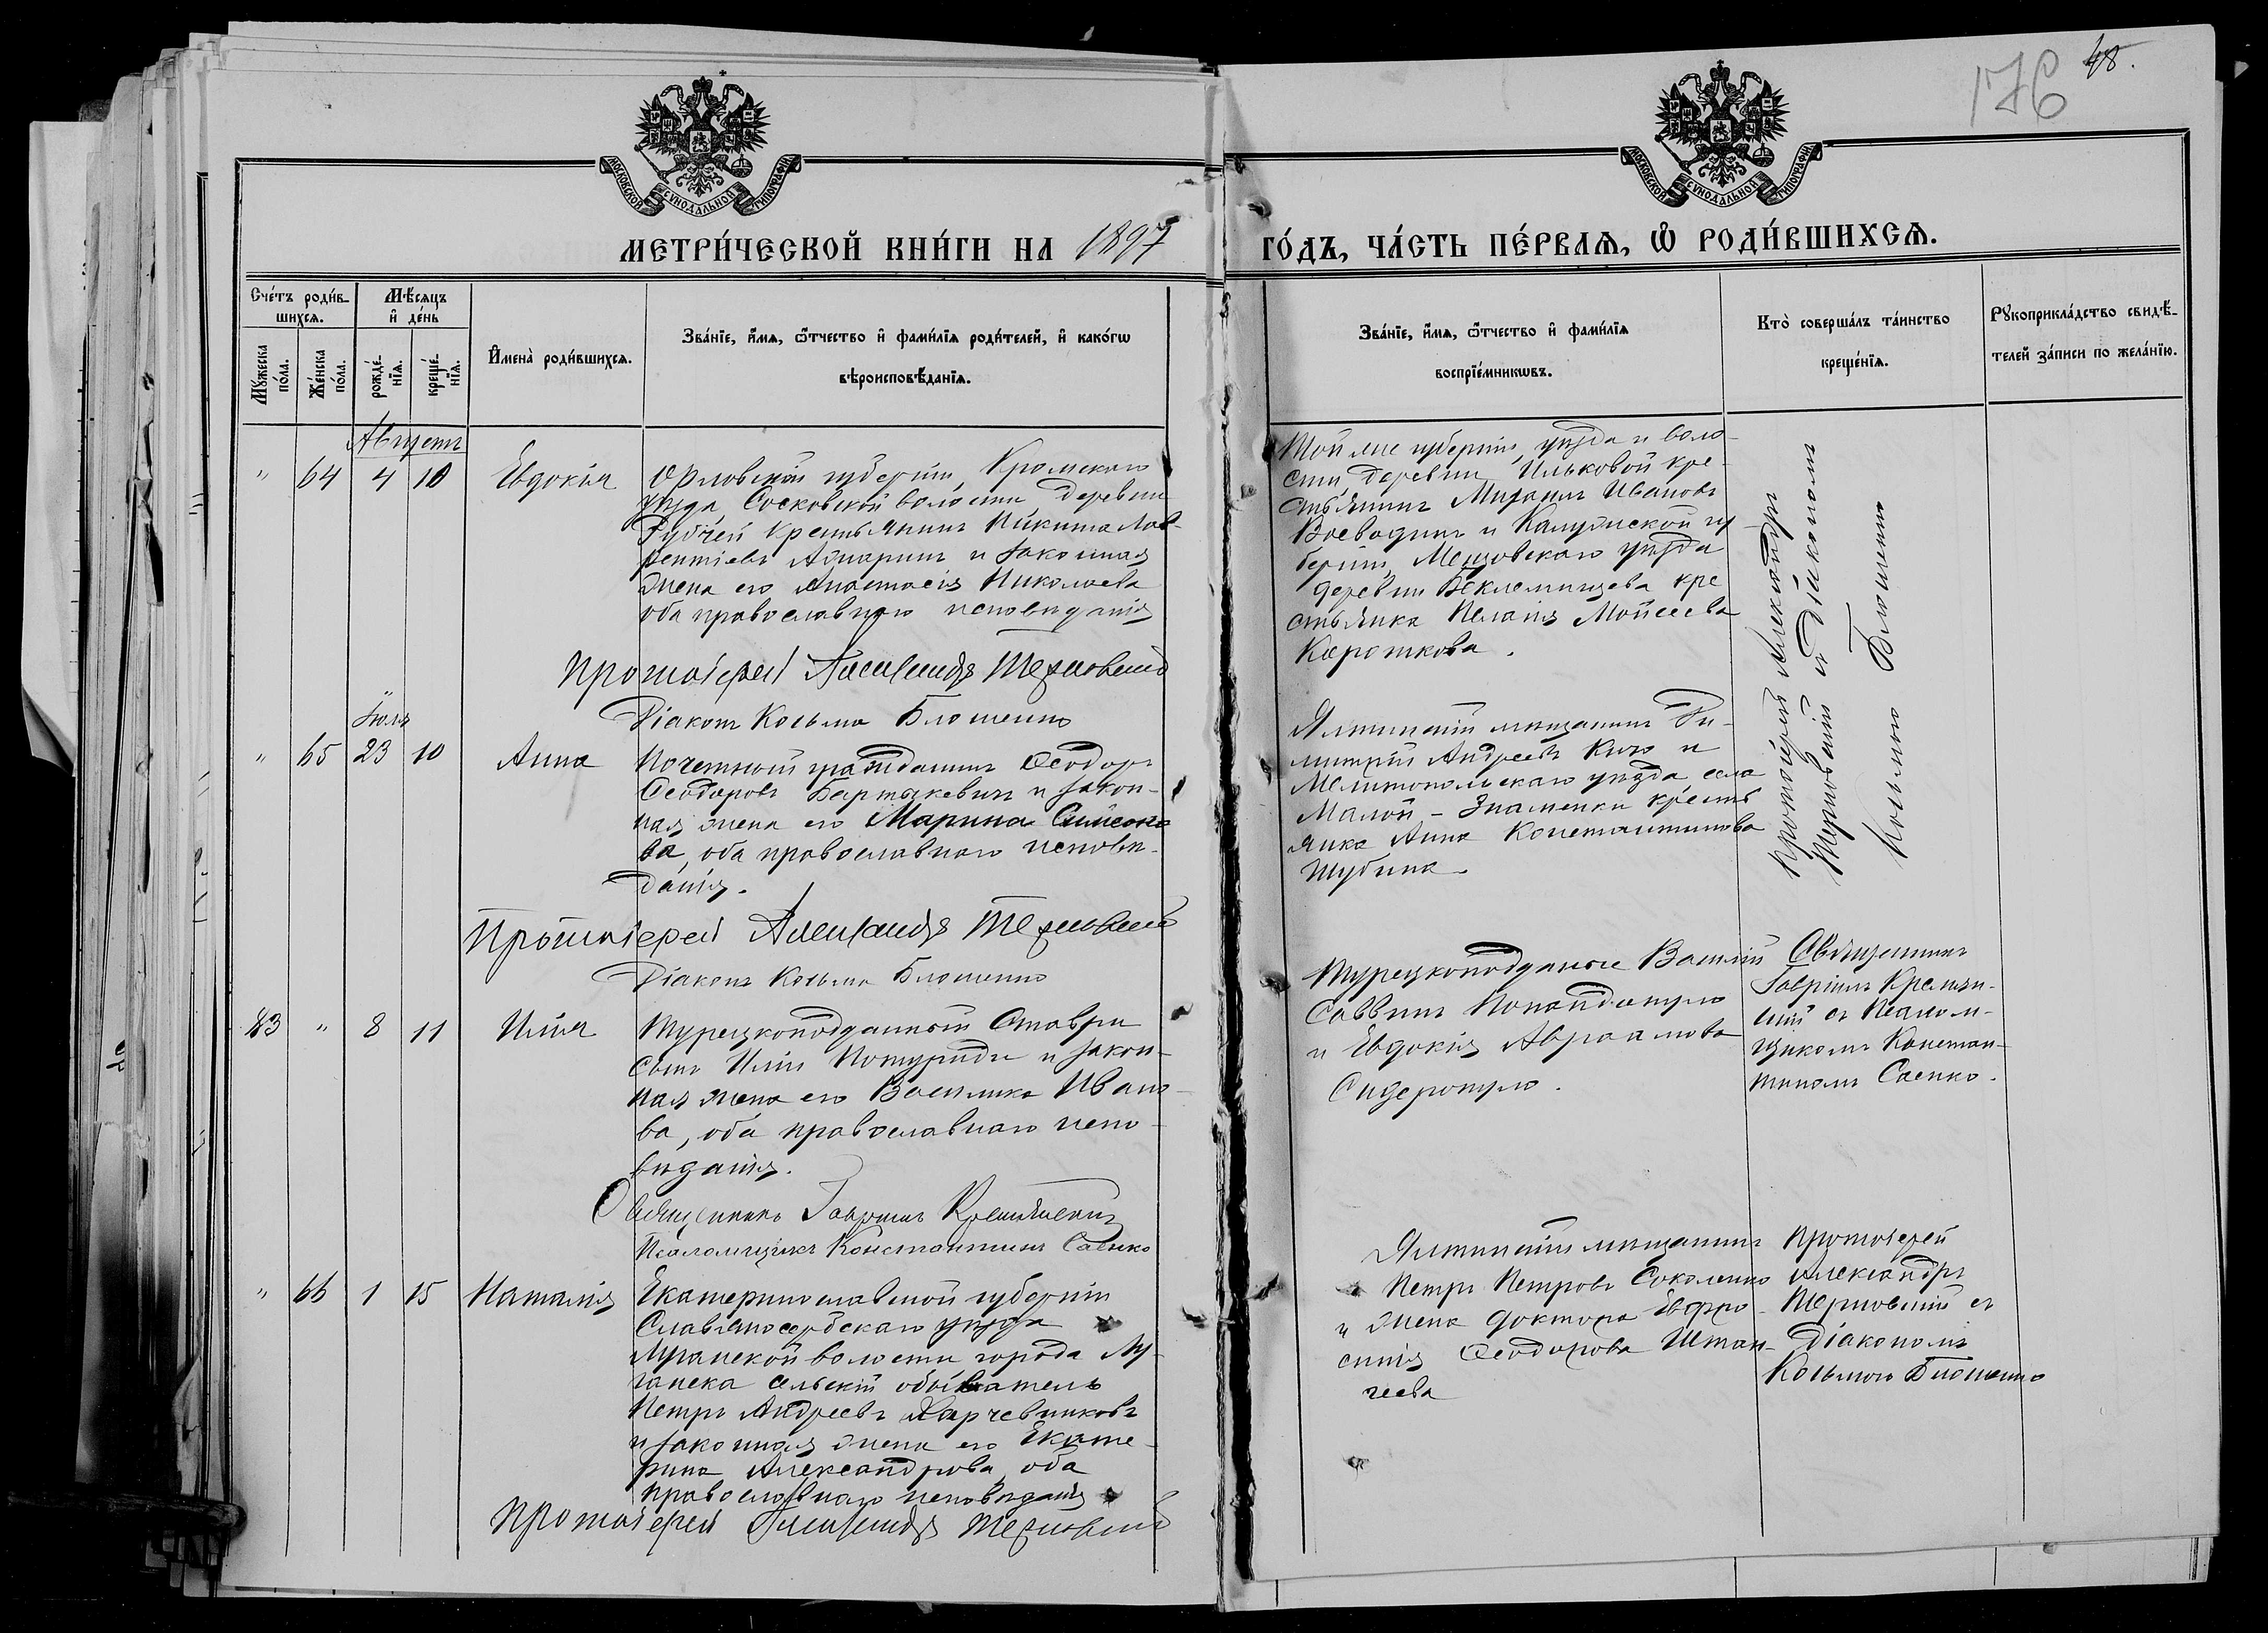 176
48.
МОСКОВСКОЙ СУНОДАЛЬНОЙ ТИПОГРАФІИ
МОСКОВСКОЙ СУНОДАЛЬНОЙ ТИПОГРАФІИ
МЕТРИ́ЧЕСКОЙ КНИ́ГИ НА 1897
ГО́ДЪ, ЧА́СТЬ ПЕ́РВАѦ, Ѡ҆ РОДИ́ВШИХСѦ.
Сче́тъ роди́в-
шихсѧ.
Мѣ́сѧцъ
и҆ де́нь
Мꙋ́жеска
по́ла.
Же́нска
по́ла.
рожде́-
нїѧ.
креще́-
нїѧ.
И҆мена̀ роди́вшихсѧ.
Зва́нїе, и҆́мѧ, ѻ҆́тчество и҆ фами́лїѧ роди́телей, и҆ како́гѡ
вѣроисповѣ́данїѧ.
Зва́нїе, и҆́мѧ, ѻ҆́тчество и҆ фами́лїѧ
воспрїе́мникѡвъ.
Кто̀ соверша́лъ та́инство
креще́нїѧ.
Рꙋкоприкла́дство свидѣ́-
телей за́писи по жела́нїю.
Августъ
" 64 4 10 Евдокія
Орловской губерніи, Кромскаго
уѣзда Сосковской волости деревни
крестьянинъ Никита Лав-
рентіевъ и законная
жена его Анастасія Николаева
оба православнаго исповѣданія
Протоіерей Александръ Терновскій
Діаконъ Косьма Блошенко
Той же губерніи, уѣзда и воло-
сти деревни Ильковой кре-
стьянинъ Михаилъ Ивановъ
Воеводинъ и Калужской гу-
берніи, Мещовскаго уѣзда
деревни Беклемищева кре
стьянка Пелагія Моисеева
Короткова.
Протоіерей Александръ
Терновскій съ Діакономъ
Косьмою Блошенко
Іюля
" 65 23 10 Анна
Почетный гражданинъ Ѳеодоръ
Ѳеодоровъ Бартшкевичъ и закон-
ная жена его Марина Симеоно
ва, оба православнаго исповѣ-
данія.
Протоіерей Александръ Терновскій
Діаконъ Косьма Блошенко
Ялтинскій мѣщанинъ Ди-
митрій Андреевъ и
Мелитопольскаго уѣзда села
Малой-Знаменки кресть
янка Анна Константинова
Шубина.
83 " 8 11 Илія
Турецкоподданный Ставри
сынъ Иліи Потуриди и закон-
ная жена его Василика Ивано-
ва, оба православнаго испо-
вѣданія.
Священникъ Гавріилъ
Псаломщикъ Константинъ Саенко
Турецкоподданные Василій
Саввинъ Попандопуло
и Евдокія Авраамова
Сидеропуло.
Священникъ
Гавріилъ
съ Псалом-
щикомъ Констан-
тиномъ Саенко.
" 66 1 15 Наталія
Екатеринославской губерніи
Славяносербскаго уѣзда
Луганской волости города Лу-
ганска сельскій обыватель
Петръ Андреевъ Харчевниковъ
и законная жена его Екате-
рина Александрова, оба
православнаго исповѣданія
Протоіерей Александръ Терновскій
Ялтинскій мѣщанинъ
Петръ Петровъ Соколенко
и жена доктора Евфро-
синія Ѳеодорова Штан-
геева
Протоіерей
Александръ
Терновскій съ
Діакономъ
Косьмою Блошенко